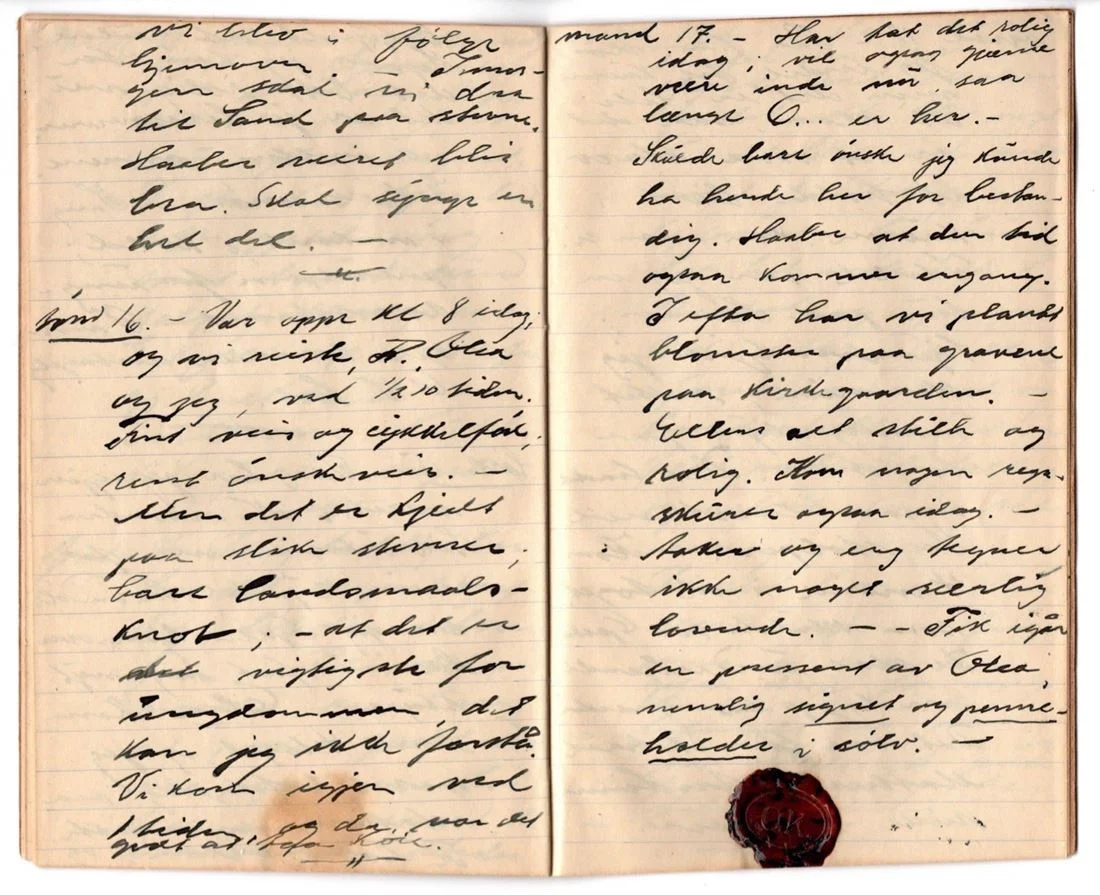 vi blev i følge
hjemover – Imor-
gen skal vi dra
til Sand paa stevne.
Haaber veiret blir
bra. Skal synge en
hel del. —
— " —
Sønd 16. – Var oppe kl 8 idag,
og vi reiste, R., Olea
og jeg, ved 1/2 10 tiden.
Fint veir og cykkelføre,
rent ønskeveir. –
Men det er kjedt
paa slike stevner,
bare landsmaals-
knot, – at det er
det vigtigste for
ungdommen, det
kan jeg ikke forstå.
Vi kom igjen ved
1 tiden, og da var det
godt at
— " —
mand 17. – Har hat det rolig
idag; vil ogsaa gjærne
være inde nu, saa
længe O... er her. –
Skulde bare ønske jeg kunde
ha hende her for bestan-
dig. Haaber at den tid
ogsaa kommer engang.
I efta har vi plantet
blomster paa gravene
paa kirkegaarden. –
Ellers alt stille og
rolig. Kom nogen regn-
skurer ogsaa idag. –
Aaker og eng tegner
ikke noget særlig
lovende. – – Fik igår
en pressent av Olea,
nemlig signet og penne-
holder i sølv. —
OK